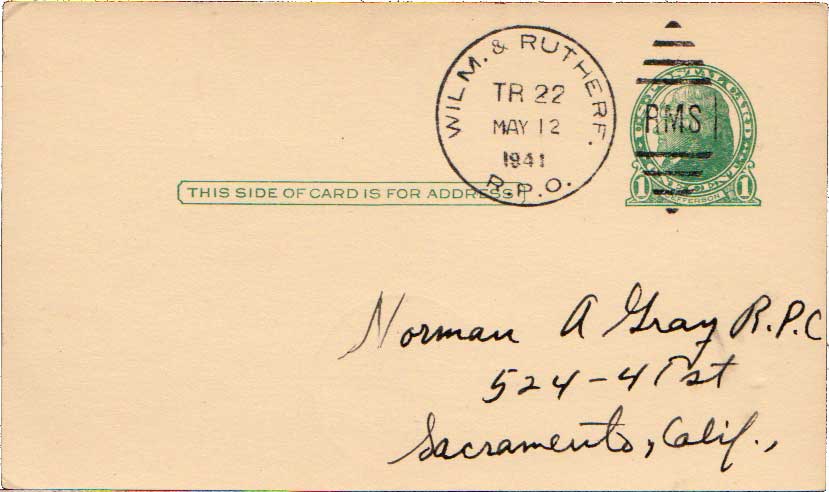 WILM. & RUTHERF.
TR 22
MAY 12
1941
R.P.O.
RMS 1
U.S. POSTAL CARD
1 ONE CENT 1
JEFFERSON
THIS SIDE OF CARD IS FOR ADDRESS
Norman A Gray R.P.C
524-41st
Sacramento, Calif.,